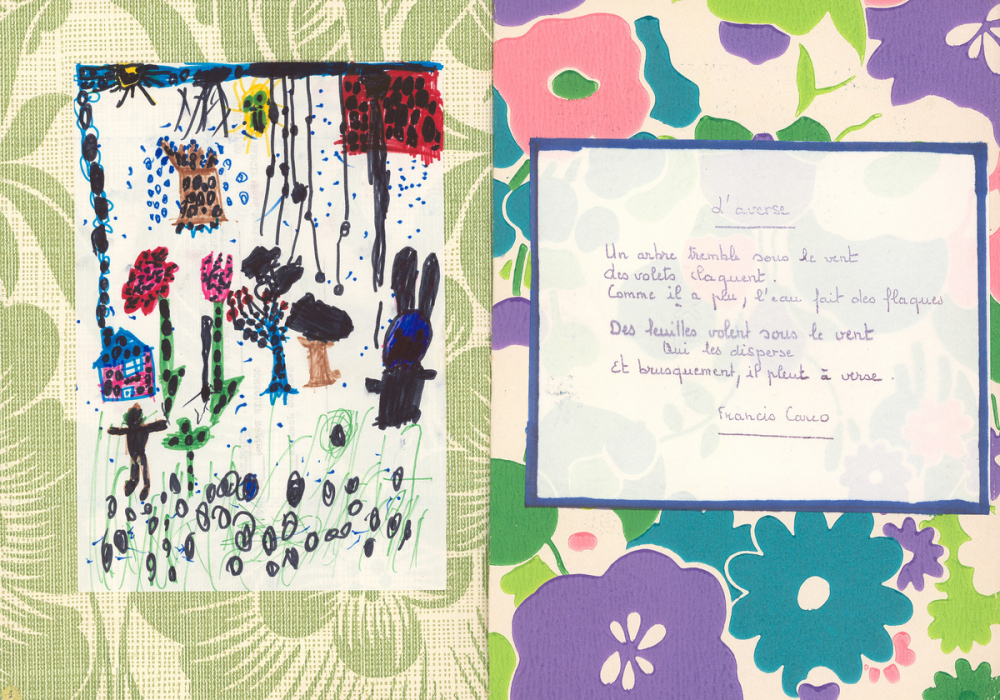 d'averse
Un arbre tremble sous le vent
des volets claquent.
Comme il a plu, l'eau fait des flaques
Des feuilles volent sous le vent
Qui les disperse
Et brusquement, il pleut à verse.
Francis Carco